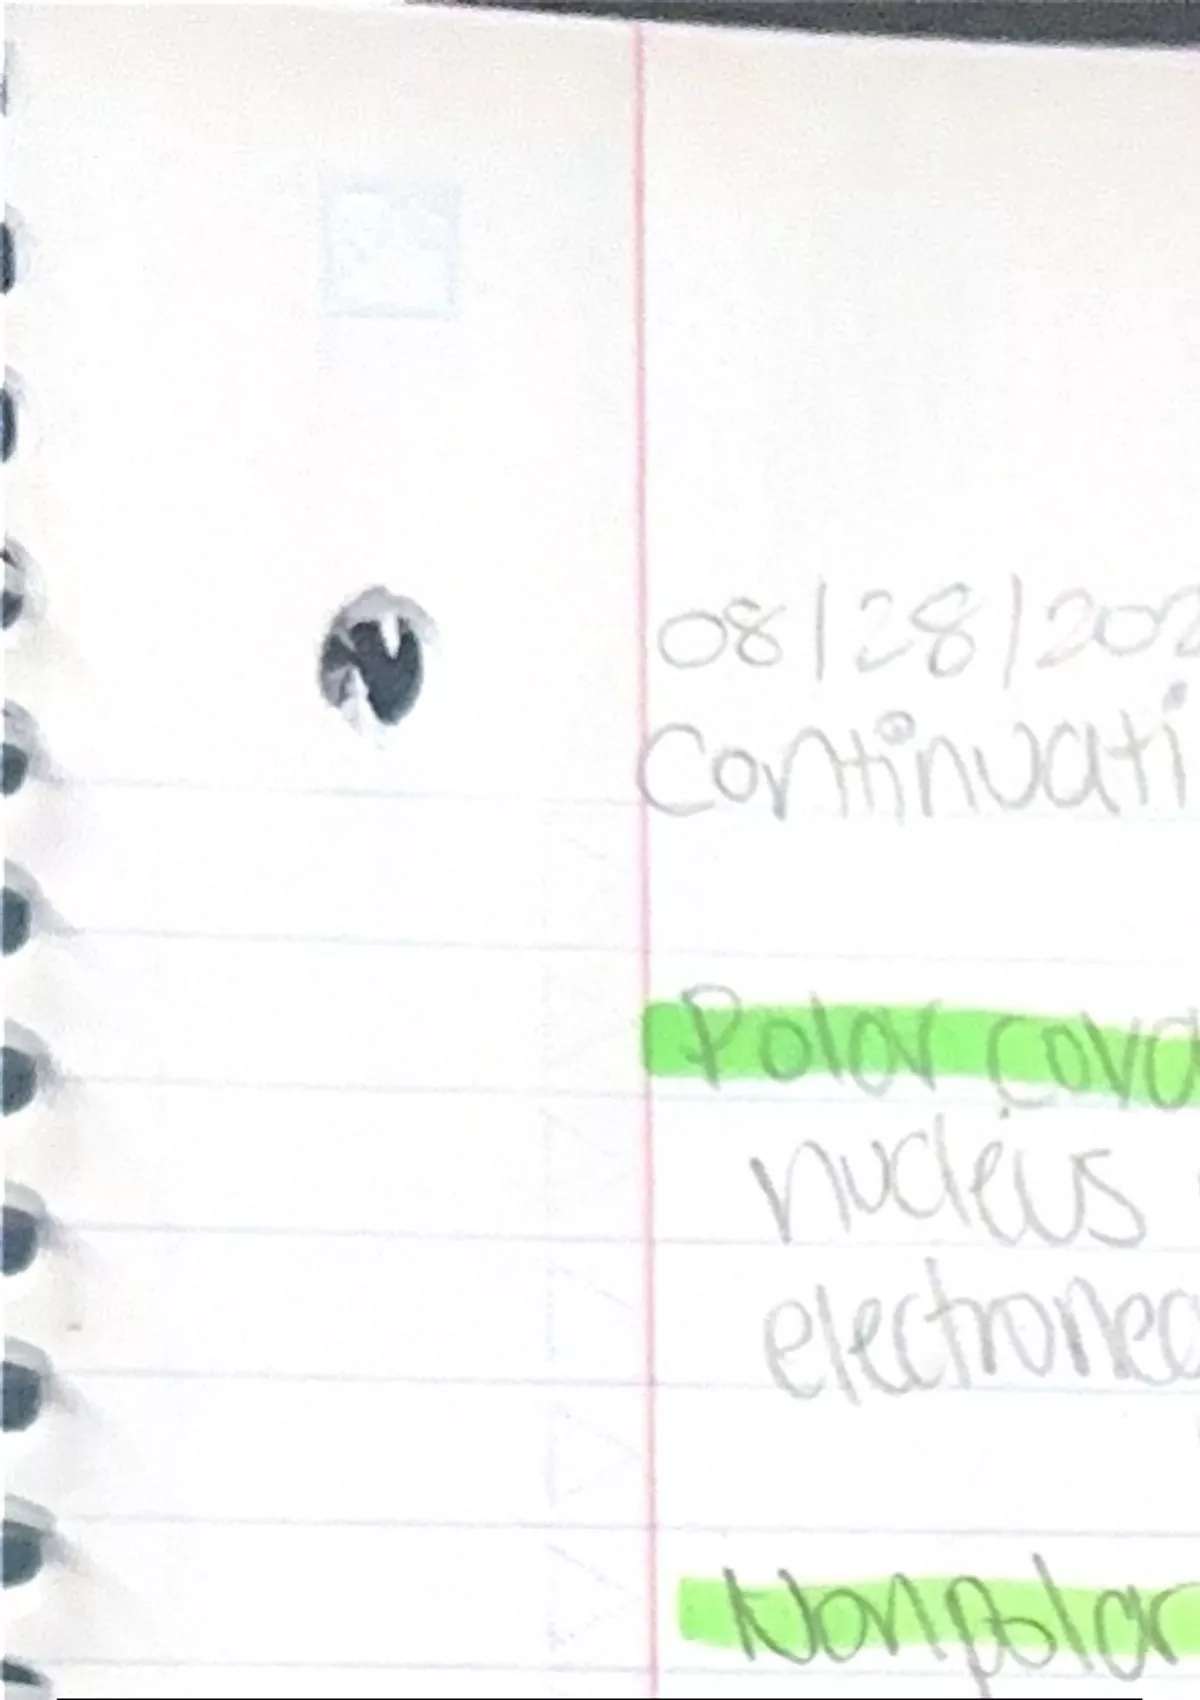 08/28/202
Continuati
Polar cova
nucleus
electroneg
Nonpolar